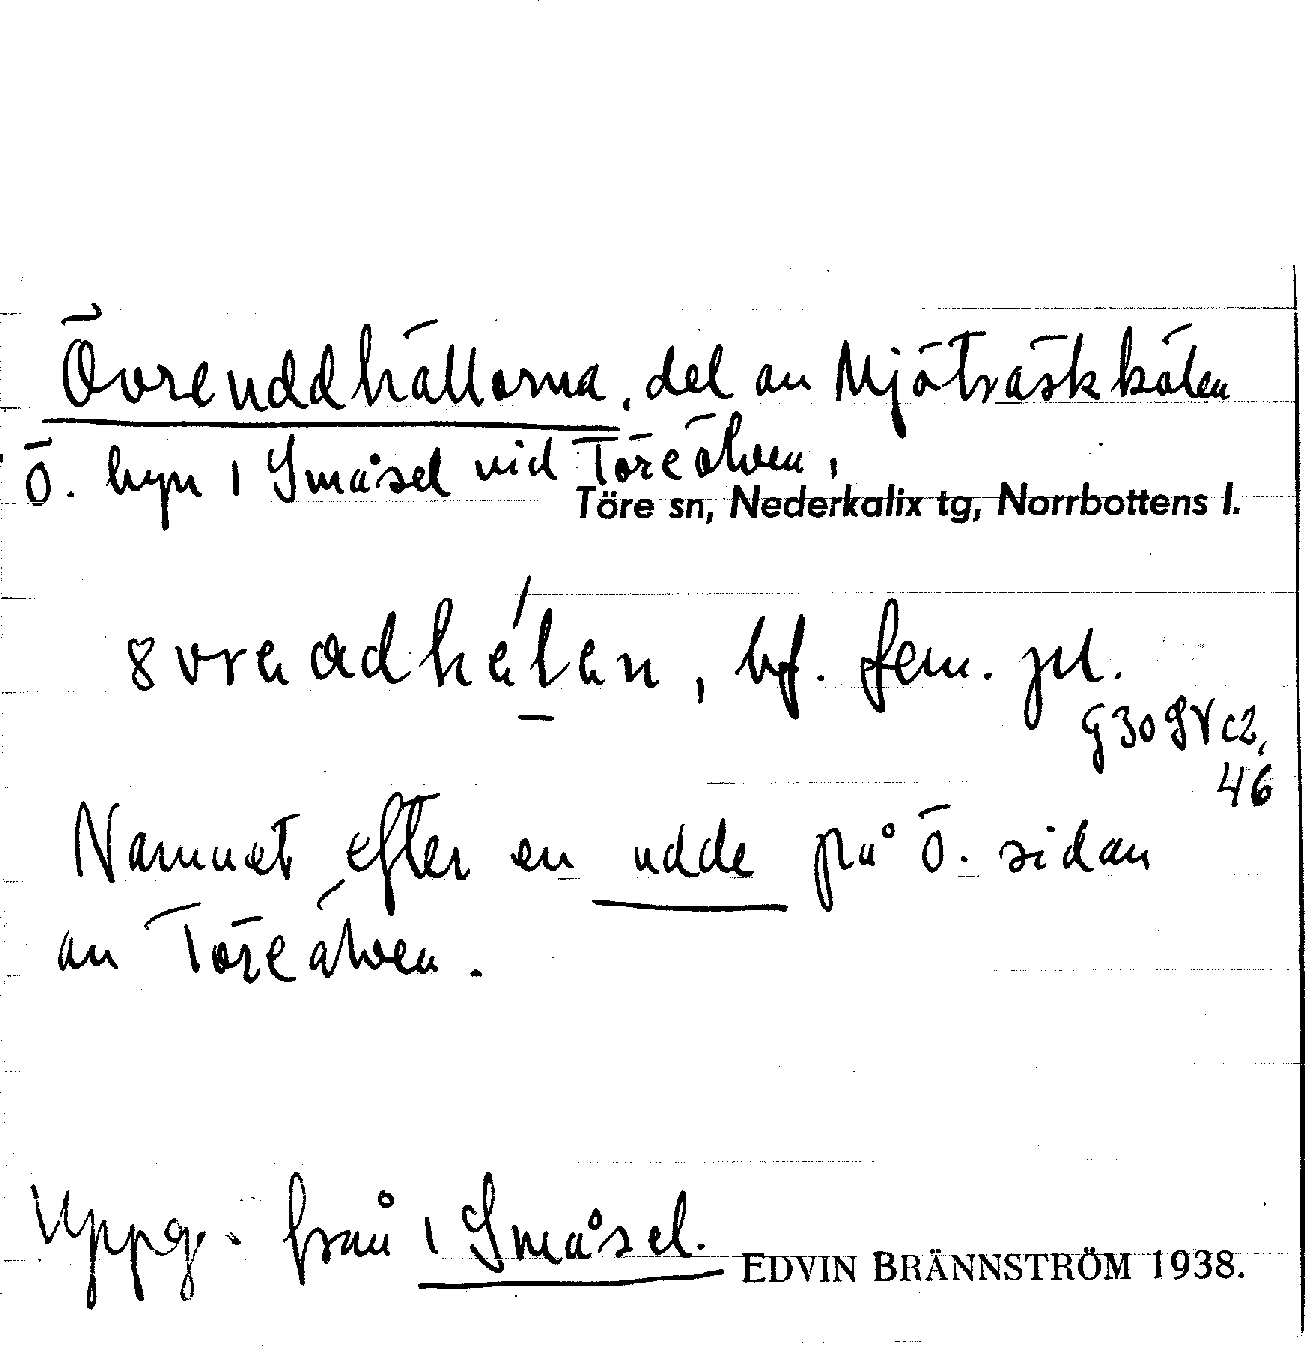 Övreuddhällorna, del av Mjöträskkölen
Ö. byn 1 Småsel vid Töreälven,
Töre sn, Nederkalix tg, Norrbottens l.
bf. fem. pl.
46
Namnet efter en udde på Ö. sidan
av Töreälven.
Uppg. från 1 Småsel.
EDVIN BRÄNNSTRÖM 1938.